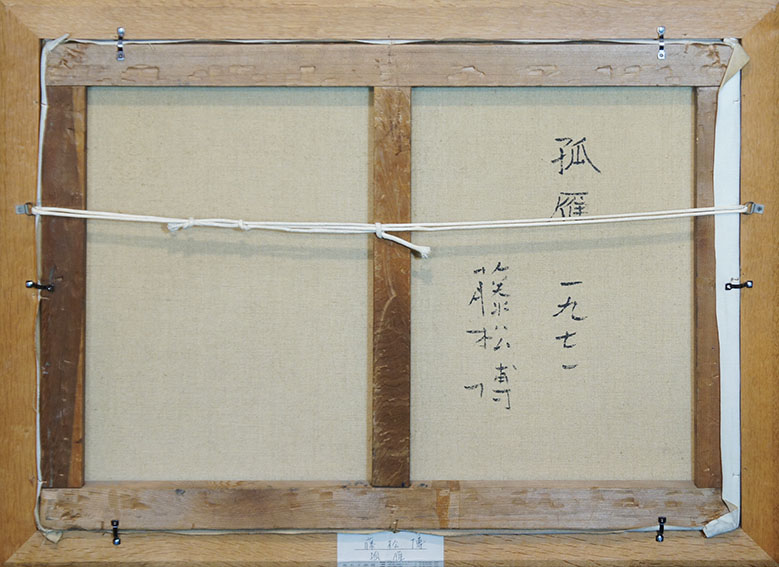 孤雁 一九七一
藤松博
藤松博
孤雁